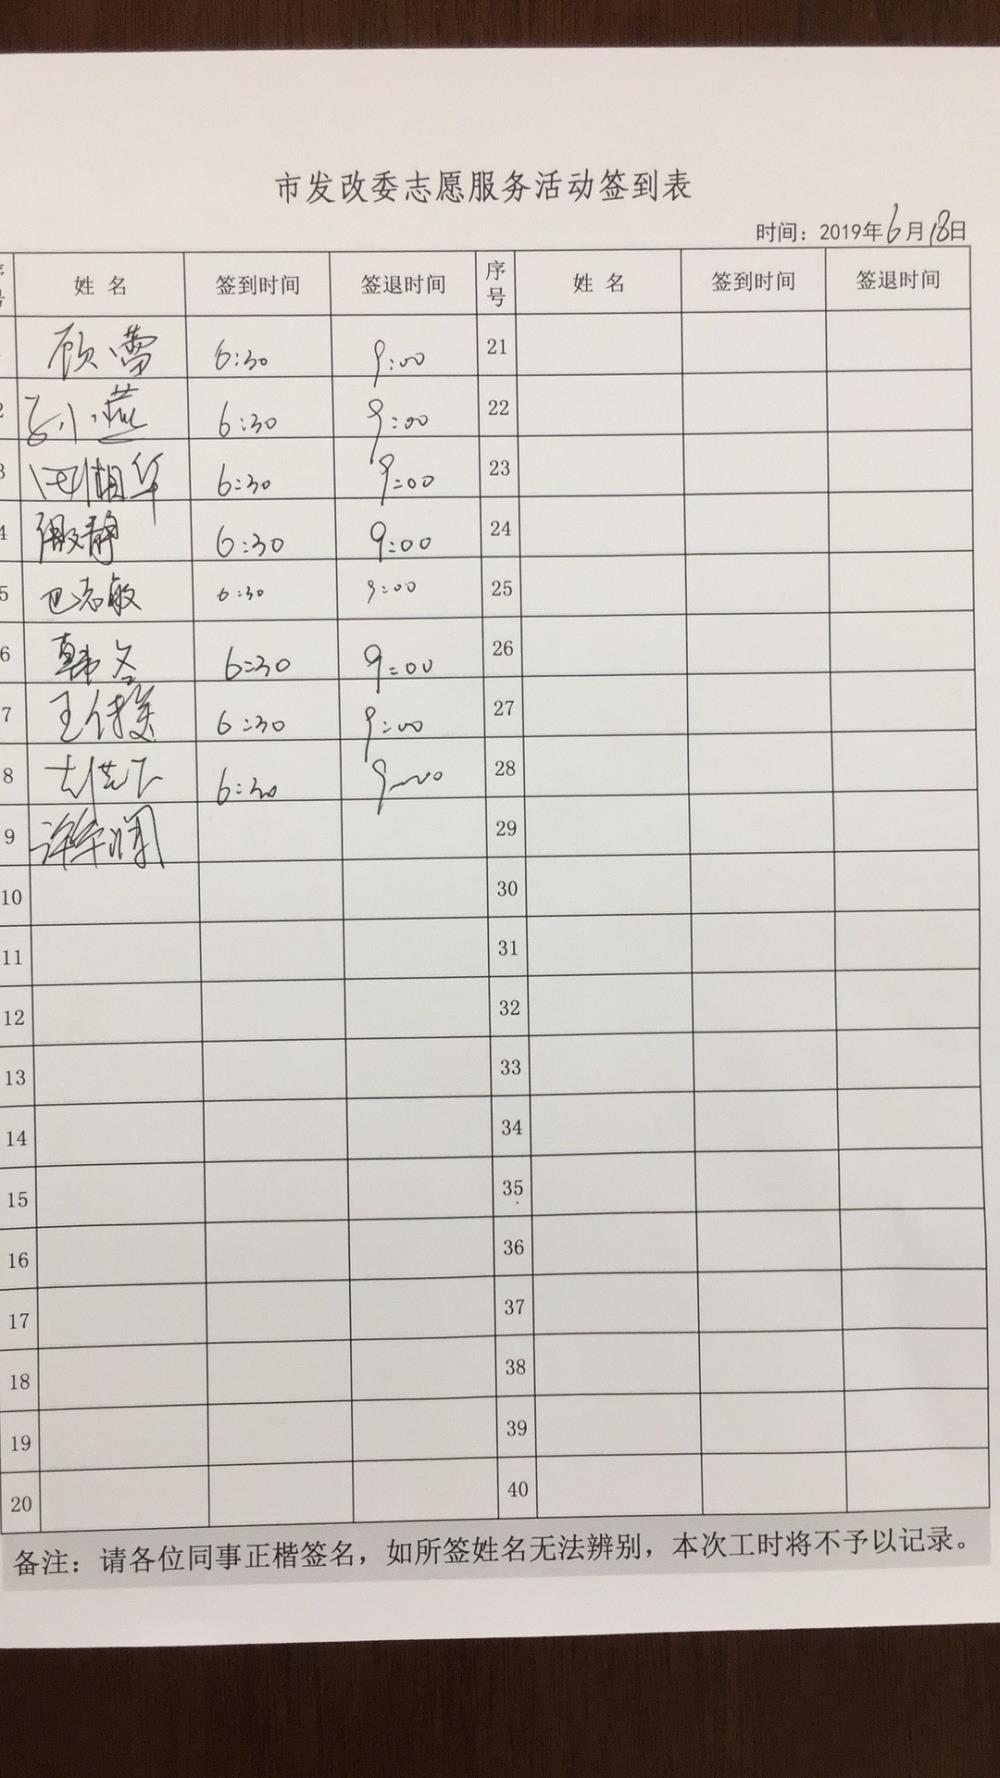 市发改委志愿服务活动签到表
时间：2019年6月18日
序号 姓名 签到时间 签退时间 序号 姓名 签到时间 签退时间
顾蕾 6:30 9:00 21
2 孙小燕 6:30 9:00 22
3 相华 6:30 9:00 23
4 静 6:30 9:00 24
5 巴志敏 6:30 9:00 25
6 韩冬 6:30 9:00 26
7 王俊 6:30 9:00 27
8 6:30 9:00 28
9 29
10 30
11 31
12 32
13 33
14 34
15 35
16 36
17 37
18 38
19 39
20 40
备注：请各位同事正楷签名，如所签姓名无法辨别，本次工时将不予以记录。